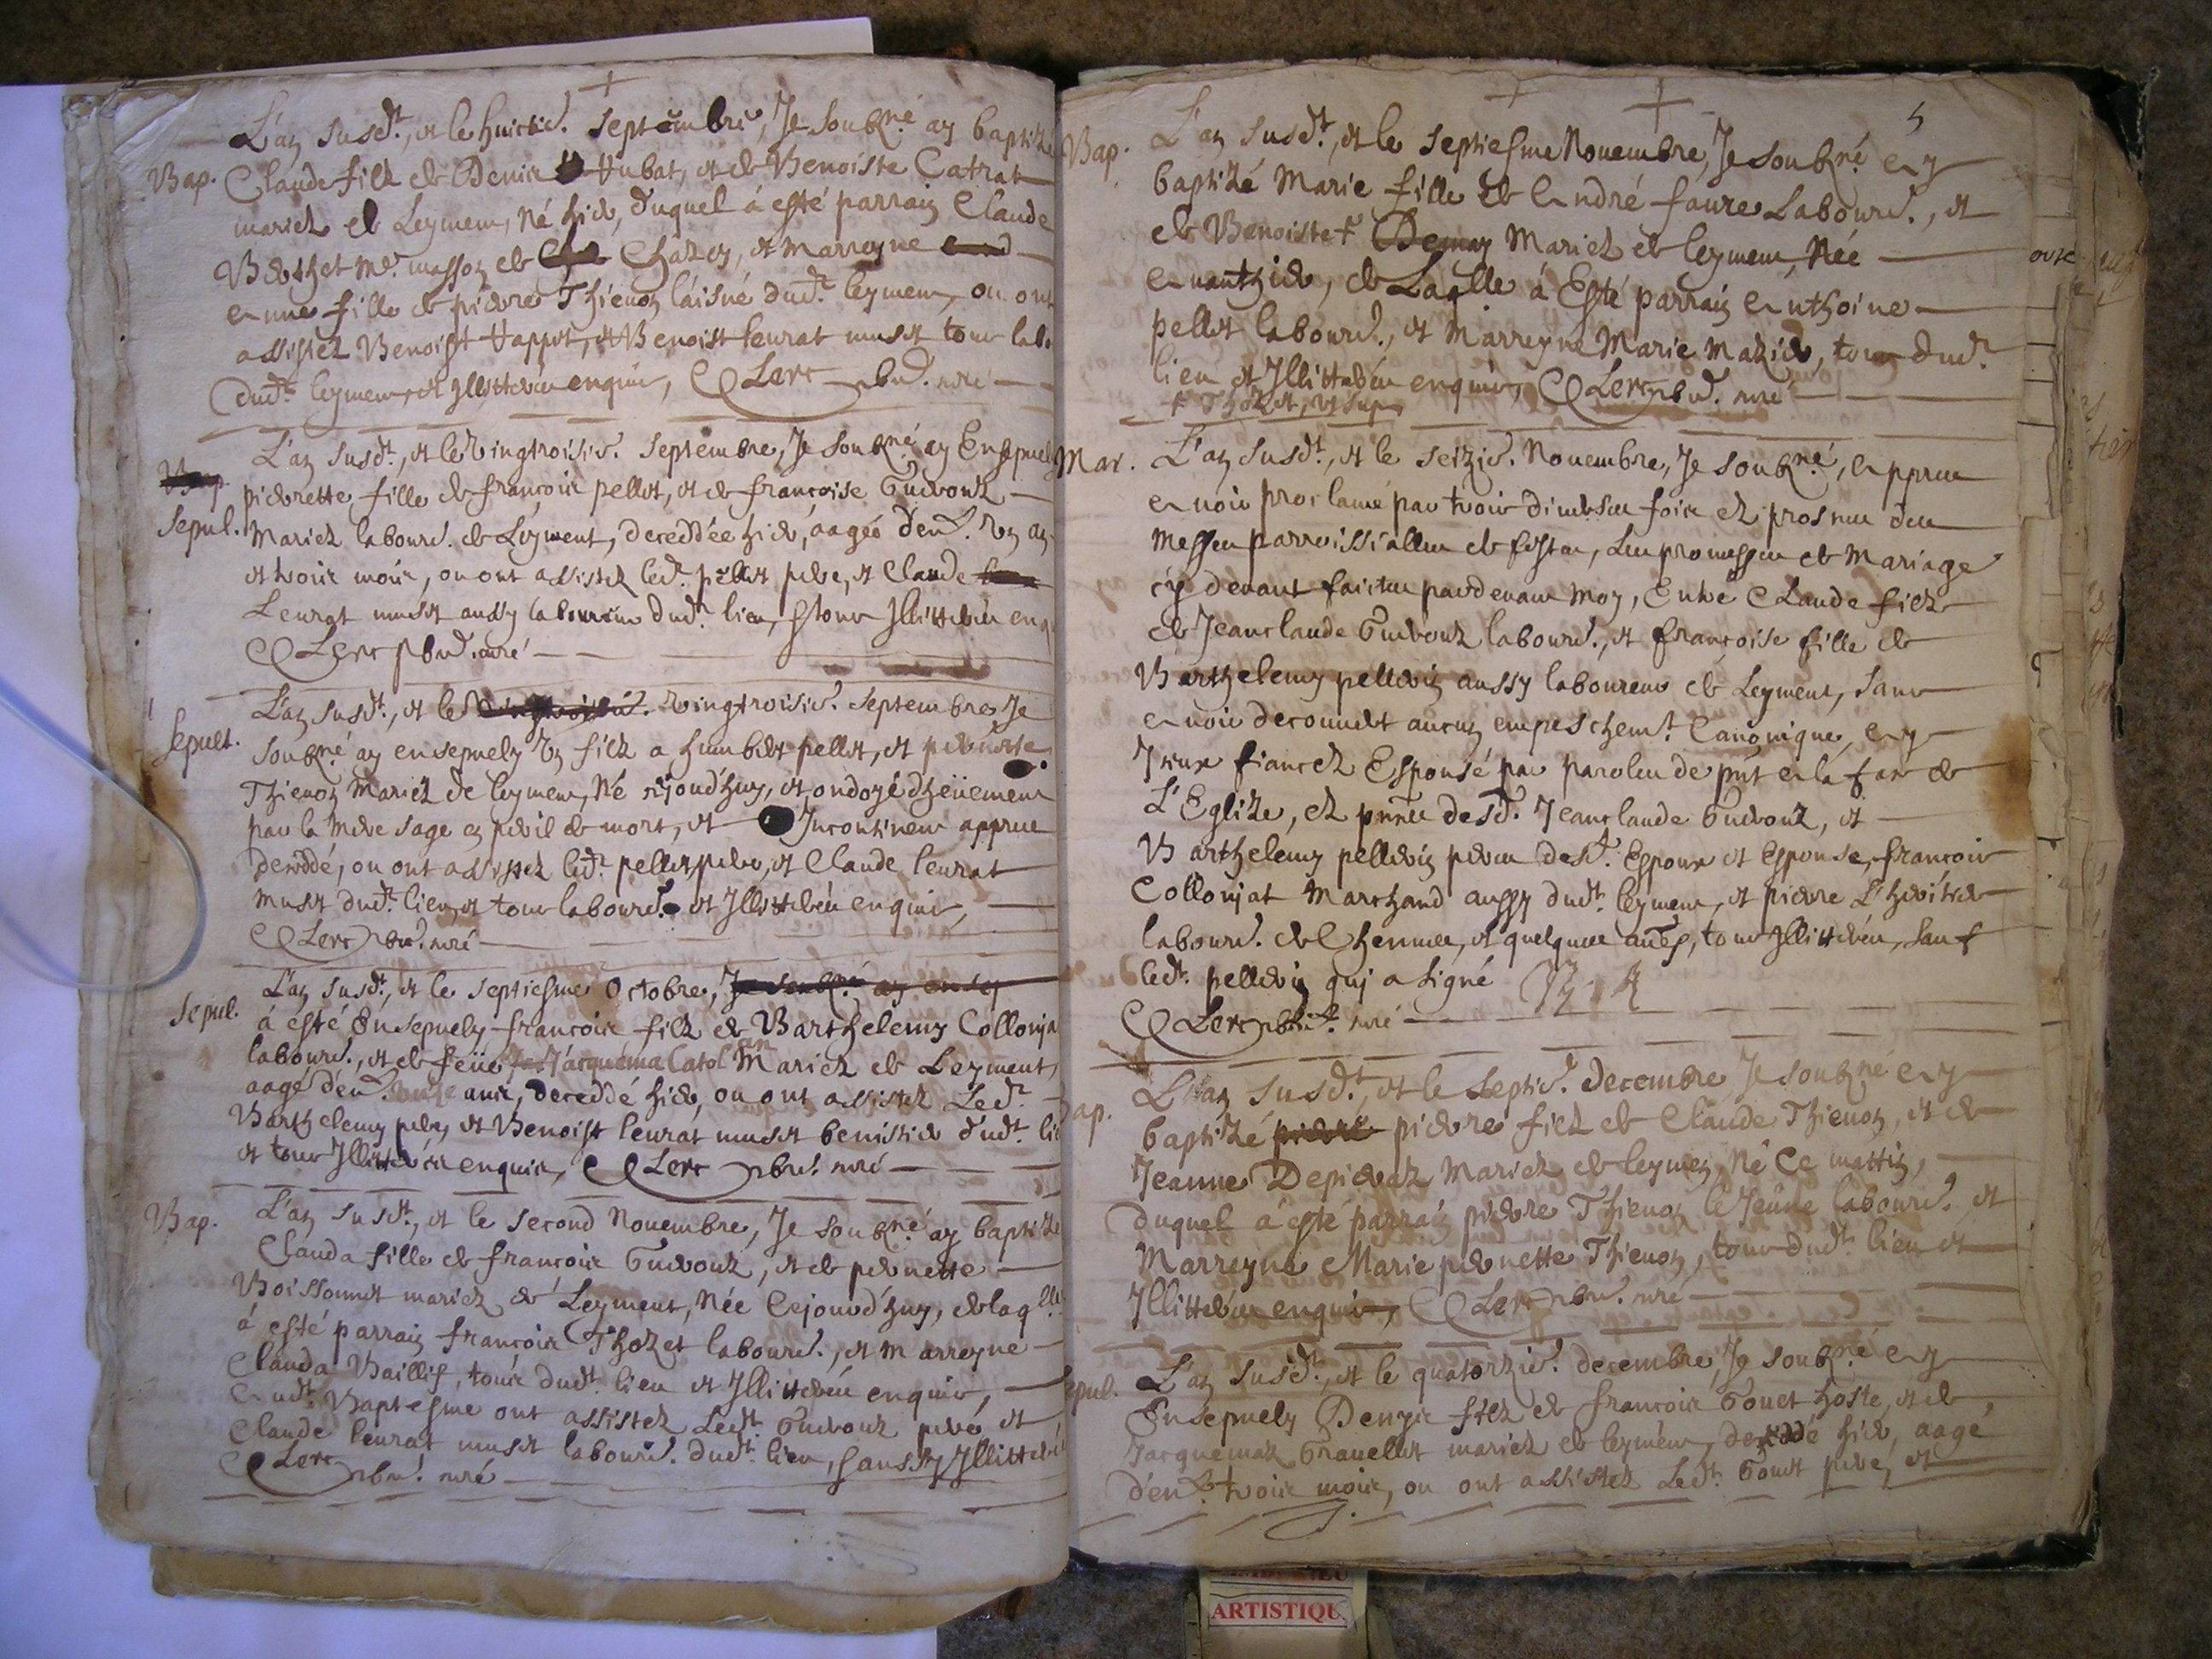 L'an susdt, et le huictie. septembre, Je soubzné ay baptizé
Bap. Claude filz de Denis Hubat, et de Benoiste Catrat
mariez de Leyment, Né hier, duquel à esté parrain Claude
Berthet Me. masson de Chazey, et marreyne
Anne fille de pierre Thienon láisné dudt. leyment, ou ont
assistez Benoist Happet, et Benoist leurat musst tous lab.
dudt. leyment, et Jllitterés enquis, CLerc pbre. curé
L'an susdt, et le vingtroisie. septembre, Je soubzné ay Ensepuely
pierrette fille de françois pellet, et de françoise Guerouz
Sepul. Mariez laboure. de Leyment, deceddée hier, aagée d'env. un an
et trois mois, ou ont assistez ledt. pellet pere, et Claude
Leurat musst aussy laboureur dudt. lieu, et tous Jllitterés enq
CLerc pbre. curé
L'an susdt, et le vingtroisie. septembre, Je
Sepult. soubzné ay ensepuely un filz a humbert pellet, et pernette
Thienon Mariez de leyment, Né cejourd'huy, et ondoyé dheuement
par la mere sage en peril de mort, et Jncontinent appres
deceddé, ou ont assistez ledt. pellet pere, et Claude leurat
musst dudt. lieu, et tous laboure. et Jllitterés enquis,
CLerc pbre. curé
L'an susdt, et le septiesme Octobre, Je soubzné ay ensep
Sepul. à esté Ensepuely françois filz de Barthelemy Collonja
laboure., et de feüe Jacquema Catol Mariez de Leyment,
aagé d'env. ans, deceddé hier, ou ont assistez Ledt.
Barthelemy pere, et Benoist leurat musst benistier dudt. lie
et tous Jllitterés enquis, CLerc pbre. curé
Bap. L'an susdt, et le second Nouembre, Je soubzné ay baptizé
Clauda fille de françois Guerouz, et de pernette
Boissonnet mariez de Leyment, Née Cejourd'huy, de laqlle
à esté parrain françois Thozet laboure., et marreyne
Clauda Baillif, tous dudt. lieu et Jllitterés enquis,
Audt. Baptesme ont assistez Ledt. Guerouz pere et
Claude leurat musst laboure. dudt. lieu, aussy Jllitteré
CLerc pbre. curé
5
Bap. L'an susdt, et le septiesme Nouembre, Je soubzné Ay
baptizé Marie fille de André faure Laboure., et
de Benoiste Mariez de leyment, Née
Auanthier, de Laqlle à Esté parrain Anthoine
pellet laboure., et Marreyne Marie Mazier, tous dudt
lieu et Jllitterés enquis, CLerc pbre. curé
+ Thozet, ut sup
Mar. L'an susdt, et le seizie. Nouembre, Je soubzné, Appres
Auoir proclamé par trois diuerses fois ez prosnes des
Messes parroissialles de festes, Les promesses de Mariage
cy deuant faictes pardeuant moy, Entre Claude filz
de Jeanclaude Guerouz laboure., et françoise fille de
Barthelemy pellerin aussy laboureur de Leyment, sans
Auoir decouuert aucun empeschemt. Canonique, Ay
Jceux fiancez Espousé par paroles de pnt A la face de
L'Eglize, Ez pnces desd. Jeanclaude Guerouz, et
Barthelemy pellerin peres desd. Espoux et Espouse, françois
Collonjat Marchand aussy dudt. leyment, et pierre L'heritier
laboure. de Chennes, et quelques aues, tous Jllitterés, sauf
ledt. pellerin quj a signé B. P.
CLerc pbre. curé
Bap. L'an susdt, et le septie. decembre, Je soubzné Ay
baptizé pierre pierre filz de Claude Thienon, et de
Jeanne Depieraz Mariez de leymen, Né Ce mattin,
duquel à esté parrain pierre Thienon le Jeune laboure. et
Marreyne Marie pernette Thienon, tous dudt. lieu et
Jllitterés enquis, CLerc pbre. curé
Sepul. L'an susdt, et le quatorzie. decembre, Je soubzné Ay
Ensepuely Denys filz de françois Gouet hoste, et de
Jacquemaz Grauellet mariez de leyment, deceddé hier, aagé
d'env. trois mois, ou ont assistez Ledt. Gouet pere, et
ARTISTIQU